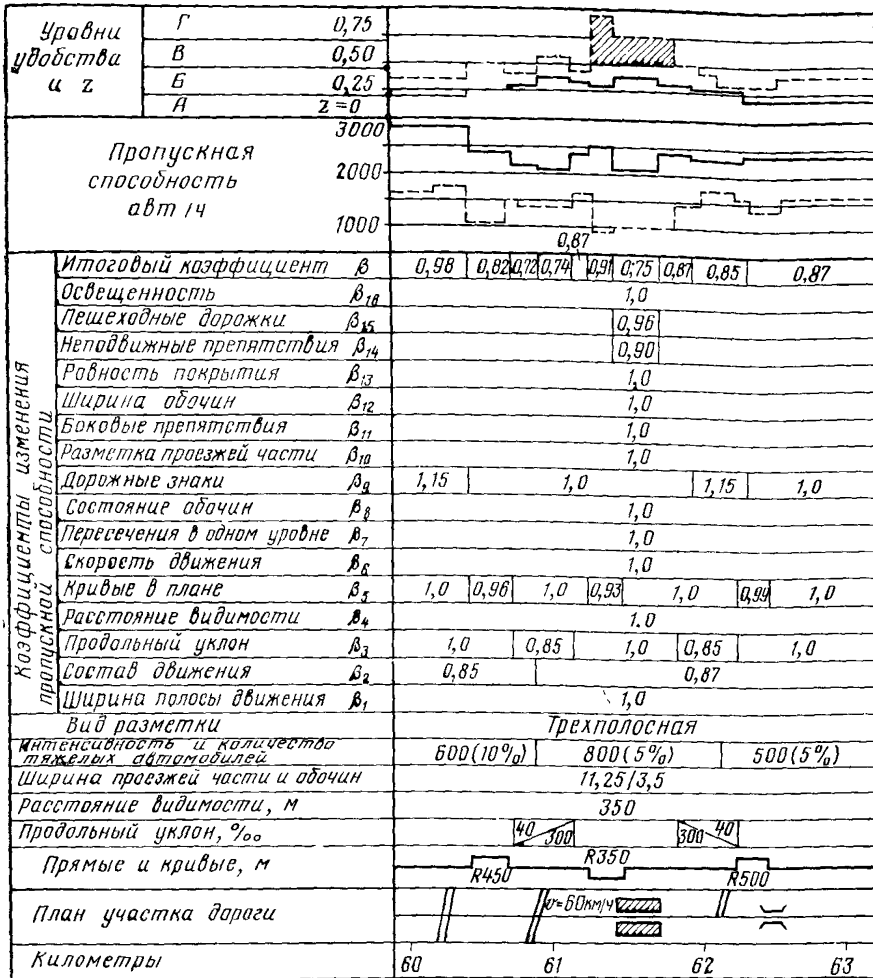 Уровни удобства и z
Г 0,75
В 0,50
Б 0,25
А z=0
Пропускная способность авт/ч
3000
2000
1000
Коэффициенты изменения пропускной способности
0,87
Итоговый коэффициент β 0,98 0,82 0,72 0,74 0,91 0,75 0,87 0,85 0,87
Освещенность β₁₆ 1,0
Пешеходные дорожки β₁₅ 0,96
Неподвижные препятствия β₁₄ 0,90
Ровность покрытия β₁₃ 1,0
Ширина обочин β₁₂ 1,0
Боковые препятствия β₁₁ 1,0
Разметка проезжей части β₁₀ 1,0
Дорожные знаки β₉ 1,15 1,0 1,15 1,0
Состояние обочин β₈ 1,0
Пересечения в одном уровне β₇ 1,0
Скорость движения β₆ 1,0
Кривые в плане β₅ 1,0 0,96 1,0 0,93 1,0 0,99 1,0
Расстояние видимости β₄ 1,0
Продольный уклон β₃ 1,0 0,85 1,0 0,85 1,0
Состав движения β₂ 0,85 0,87
Ширина полосы движения β₁ 1,0
Вид разметки Трехполосная
Интенсивность и количество тяжелых автомобилей 600(10%) 800(5%) 500(5%)
Ширина проезжей части и обочин 11,25/3,5
Расстояние видимости, м 350
Продольный уклон, ‰ 40 300 300 40
Прямые и кривые, м R450 R350 R500
План участка дороги v=60км/ч
Километры 60 61 62 63